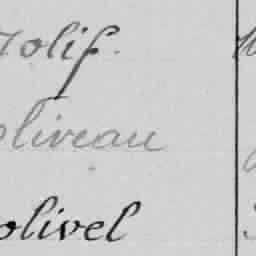 Jolif
oliveau
olivel